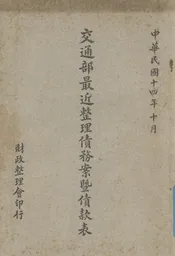 中華民國十四年十月
交通部最近整理債務案暨債款表
財政整理會印行